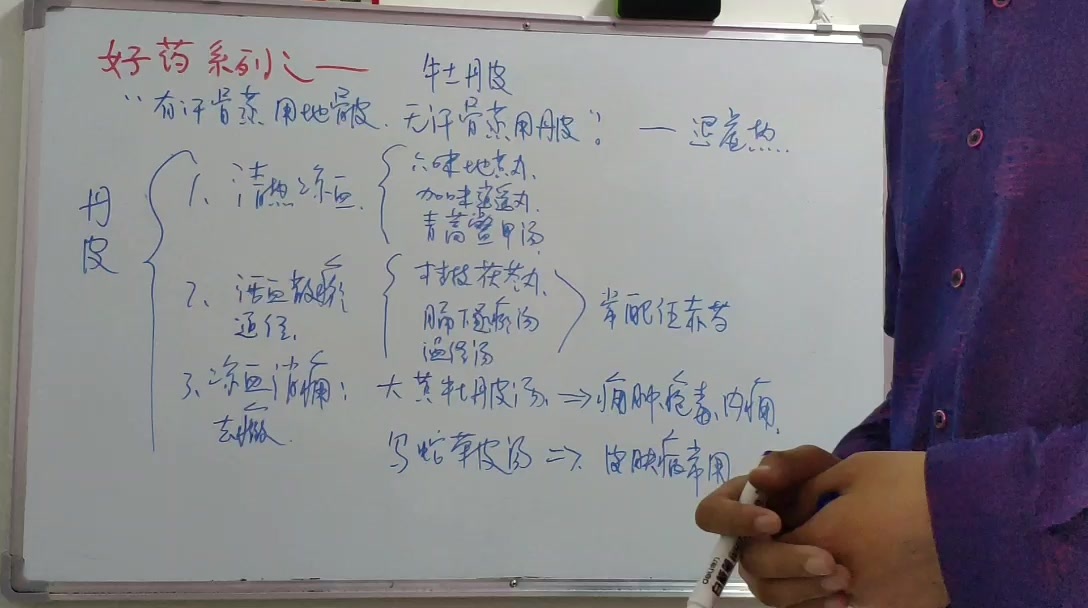 好药系列之一
牡丹皮
“有汗骨蒸用地骨皮. 无汗骨蒸用丹皮”。 — 退虚热.
丹皮
1、清热凉血.
六味地黄丸、
加味逍遥丸.
青蒿鳖甲汤.
2、活血散瘀
通经.
桂枝茯苓丸、
膈下逐瘀汤
温经汤
常配伍赤芍
3、凉血消痈:
去瘀.
大黄牡丹皮汤、⇒ 痈肿疮毒、内痈.
乌蛇荣皮汤 ⇒ 皮肤病常用
deli